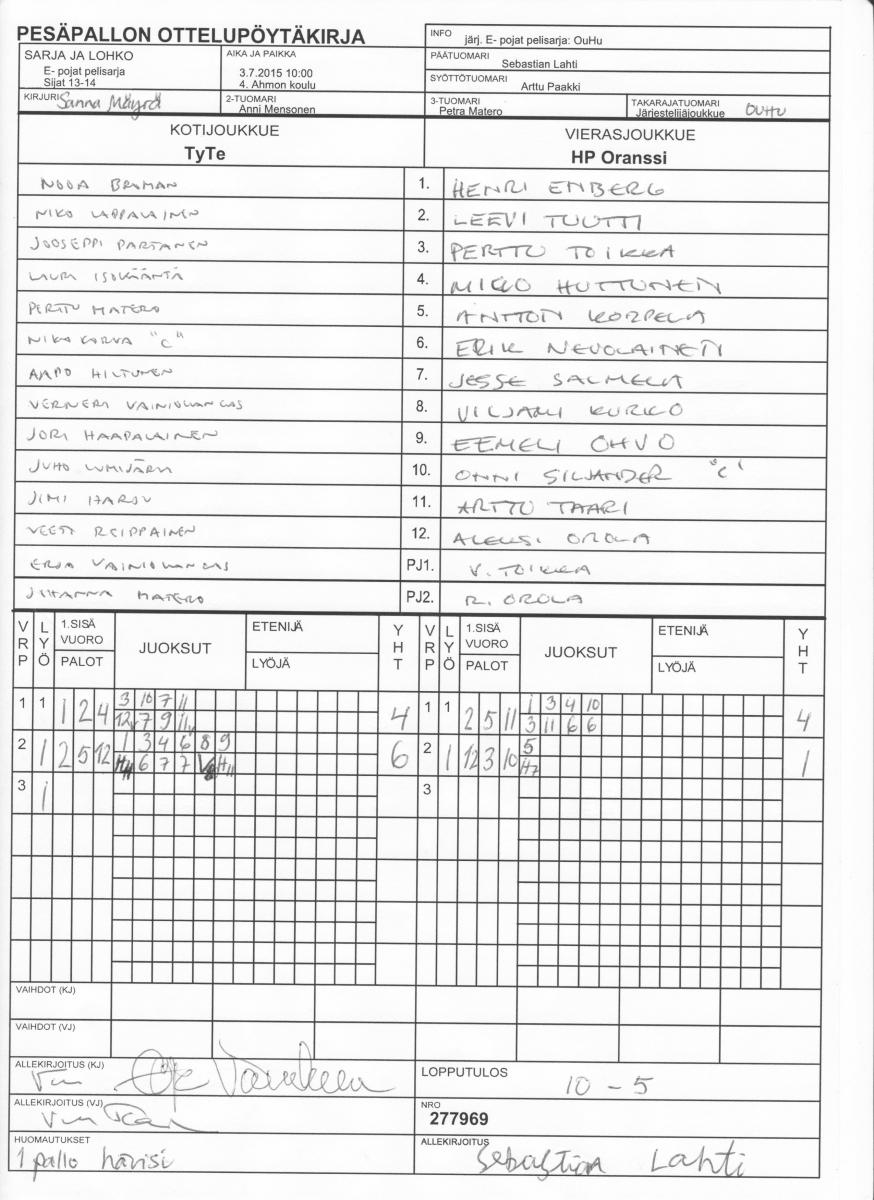 PESÄPALLON OTTELUPÖYTÄKIRJA
INFO järj. E- pojat pelisarja: OuHu
SARJA JA LOHKO
E- pojat pelisarja
Sijat 13-14
AIKA JA PAIKKA
3.7.2015 10:00
4. Ahmon koulu
PÄÄTUOMARI
Sebastian Lahti
SYÖTTÖTUOMARI
Arttu Paakki
KIRJURI Sanna Mäyrä
2-TUOMARI
Anni Mensonen
3-TUOMARI
Petra Matero
TAKARAJATUOMARI
Järjestelijäjoukkue OUHU
KOTIJOUKKUE
TyTe
VIERASJOUKKUE
HP Oranssi
NOOA BRAMAN 1. HENRI ENBERG
NIKO LAPPALAINEN 2. LEEVI TUUTTI
JOOSEPPI PARTANEN 3. PERTTU TOIKKA
LAURI ISOKÄÄNTÄ 4. MIKO HUTTUNEN
PERTTU MATERO 5. ANTTON KORPELA
NIKO KORVA "C" 6. ERIK NEVOLAINEN
AAPO HILTUNEN 7. JESSE SALMELA
VERNERI VAINIOKANGAS 8. VILJAMI KURKO
JORI HAAPALAINEN 9. EEMELI OHVO
JUHO LUMIJÄRVI 10. ONNI SILJANDER "C"
JIMI HARJU 11. ARTTU TAARI
VEETI REIPPAINEN 12. ALEKSI OROLA
ERJA VAINIOKANGAS PJ1. V. TOIKKA
JUHANNA MATERO PJ2. R. OROLA
VRP LYÖ 1.SISÄ VUORO PALOT JUOKSUT ETENIJÄ LYÖJÄ YHT VRP LYÖ 1.SISÄ VUORO PALOT JUOKSUT ETENIJÄ LYÖJÄ YHT
1 1 1 2 4 3 10 7 11 4 1 1 2 5 11 1 3 4 10 4
12v 7 9 11v 3 11 6 6
2 1 2 5 12 1 3 4 6 8 9 6 2 1 12 3 10 5 1
H11 6 7 7 V8 H11 H7
3 1 3
VAIHDOT (KJ)
VAIHDOT (VJ)
ALLEKIRJOITUS (KJ)
LOPPUTULOS 10 - 5
ALLEKIRJOITUS (VJ)
NRO
277969
HUOMAUTUKSET
1 pallo hävisi
ALLEKIRJOITUS Sebastian Lahti